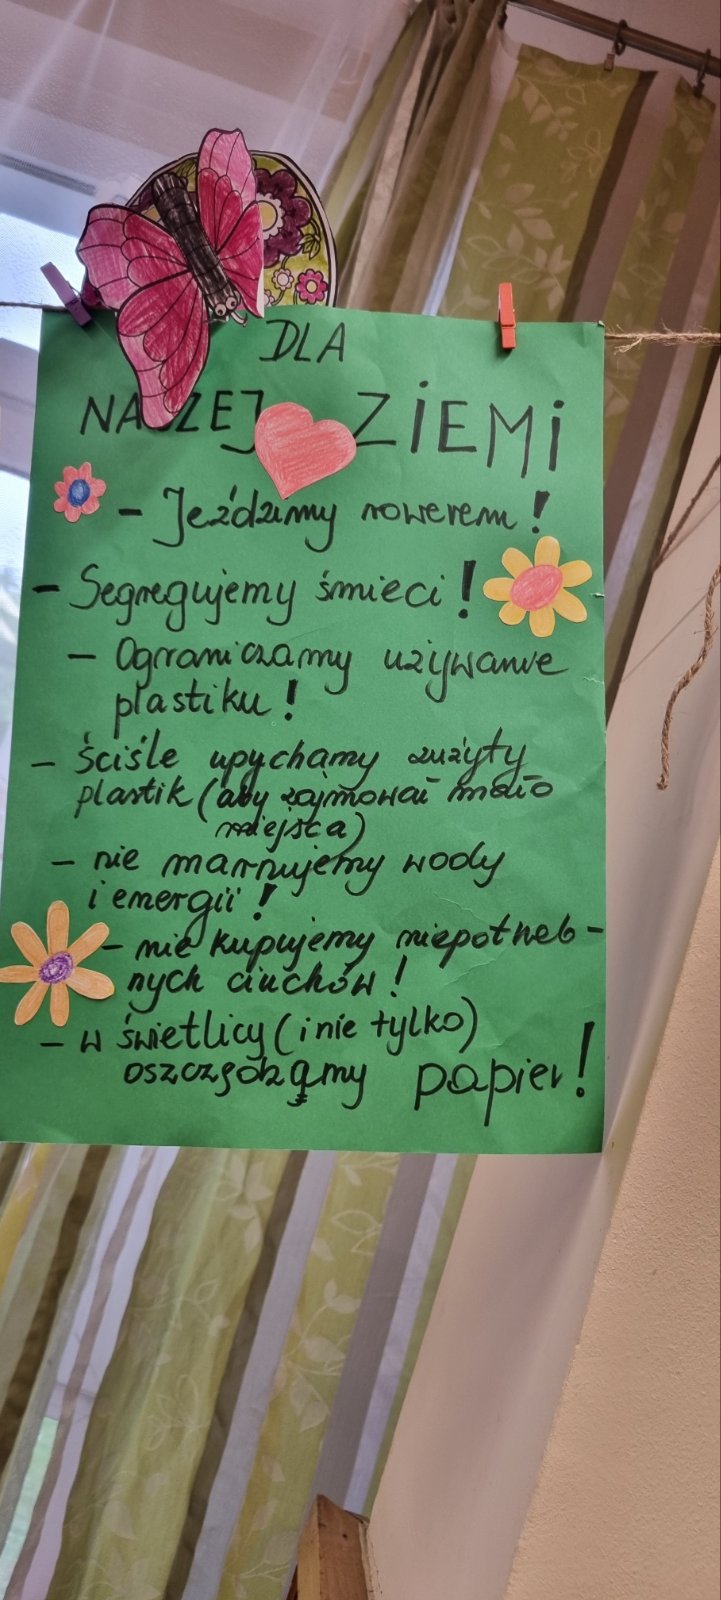 DLA
NASZEJ ZIEMI
- Jeździmy rowerem!
- Segregujemy śmieci!
- Ograniczamy używanie
plastiku!
- ściśle upychamy zużyty
plastik (aby zajmował mało
miejsca)
- nie marnujemy wody
i energii!
- nie kupujemy niepotrzeb-
nych ciuchów!
- w świetlicy (i nie tylko)
oszczędzamy papier!